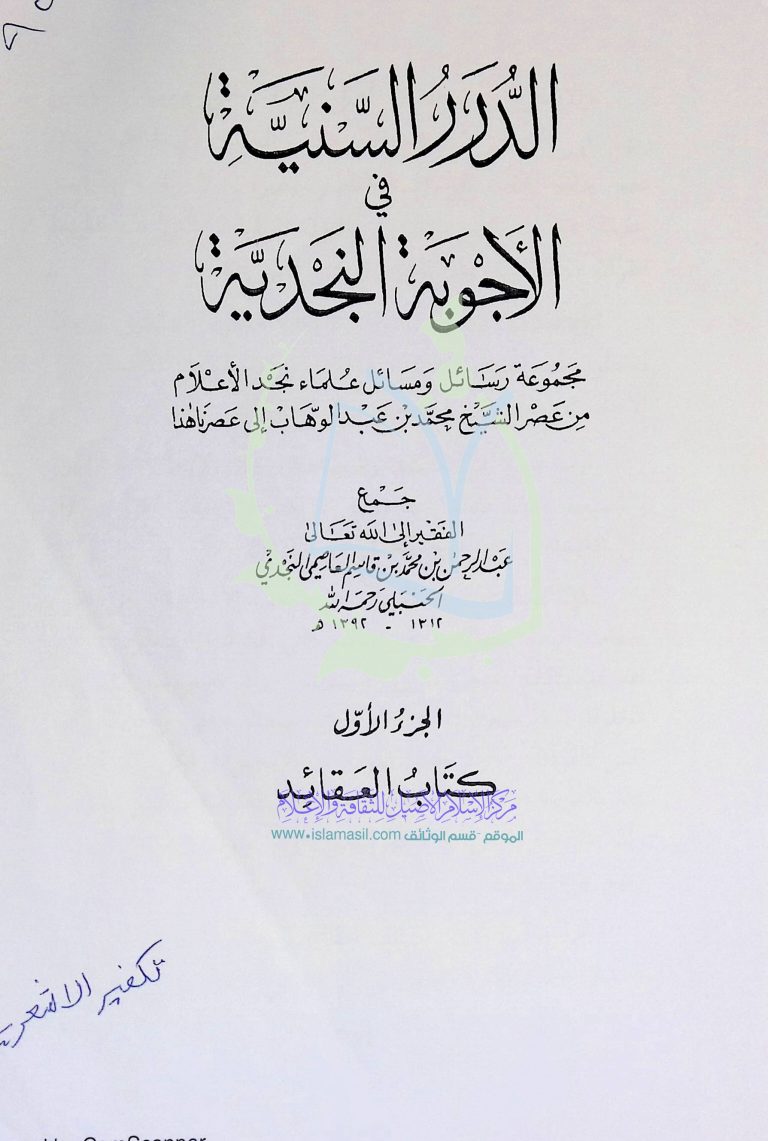 الدُّرَرُ السَّنِيَّةِ
في
الأَجْوِبَةِ النَّجْدِيَّةِ
مَجْمُوعَة رَسَائل وَمَسَائل عُلمَاء نَجْد الأعْلَام
مِن عَصْر الشَّيْخ محمَّد بن عَبْد الوهّاب إلى عَصرنا هٰذا
جَمْع
الفقير إلى الله تعَالىٰ
عَبْد الرحمٰن بن محمَّد بن قاسِم العَاصِمي النَّجْدي
الحَنْبَلي رَحمَهُ الله
١٣١٢ - ١٣٩٢ هـ
الجزءُ الأوّل
كتَابُ العَقَائِد
مركز الإسلام الأصيل للثقافة والإعلام
الموقع - قسم الوثائق www.islamasil.com
تكفير الاشعرية